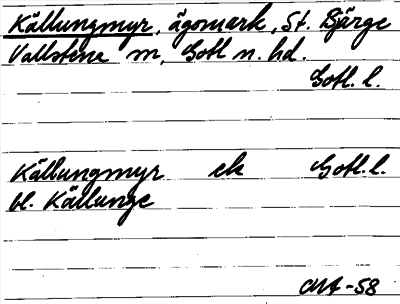 Källungmyr, ägomark, St. Bjärge
Vallstena sn, Gotl n. hd.
Gotl. l.
Källungmyr ek Gotl. l.
bl. Källunge
-58